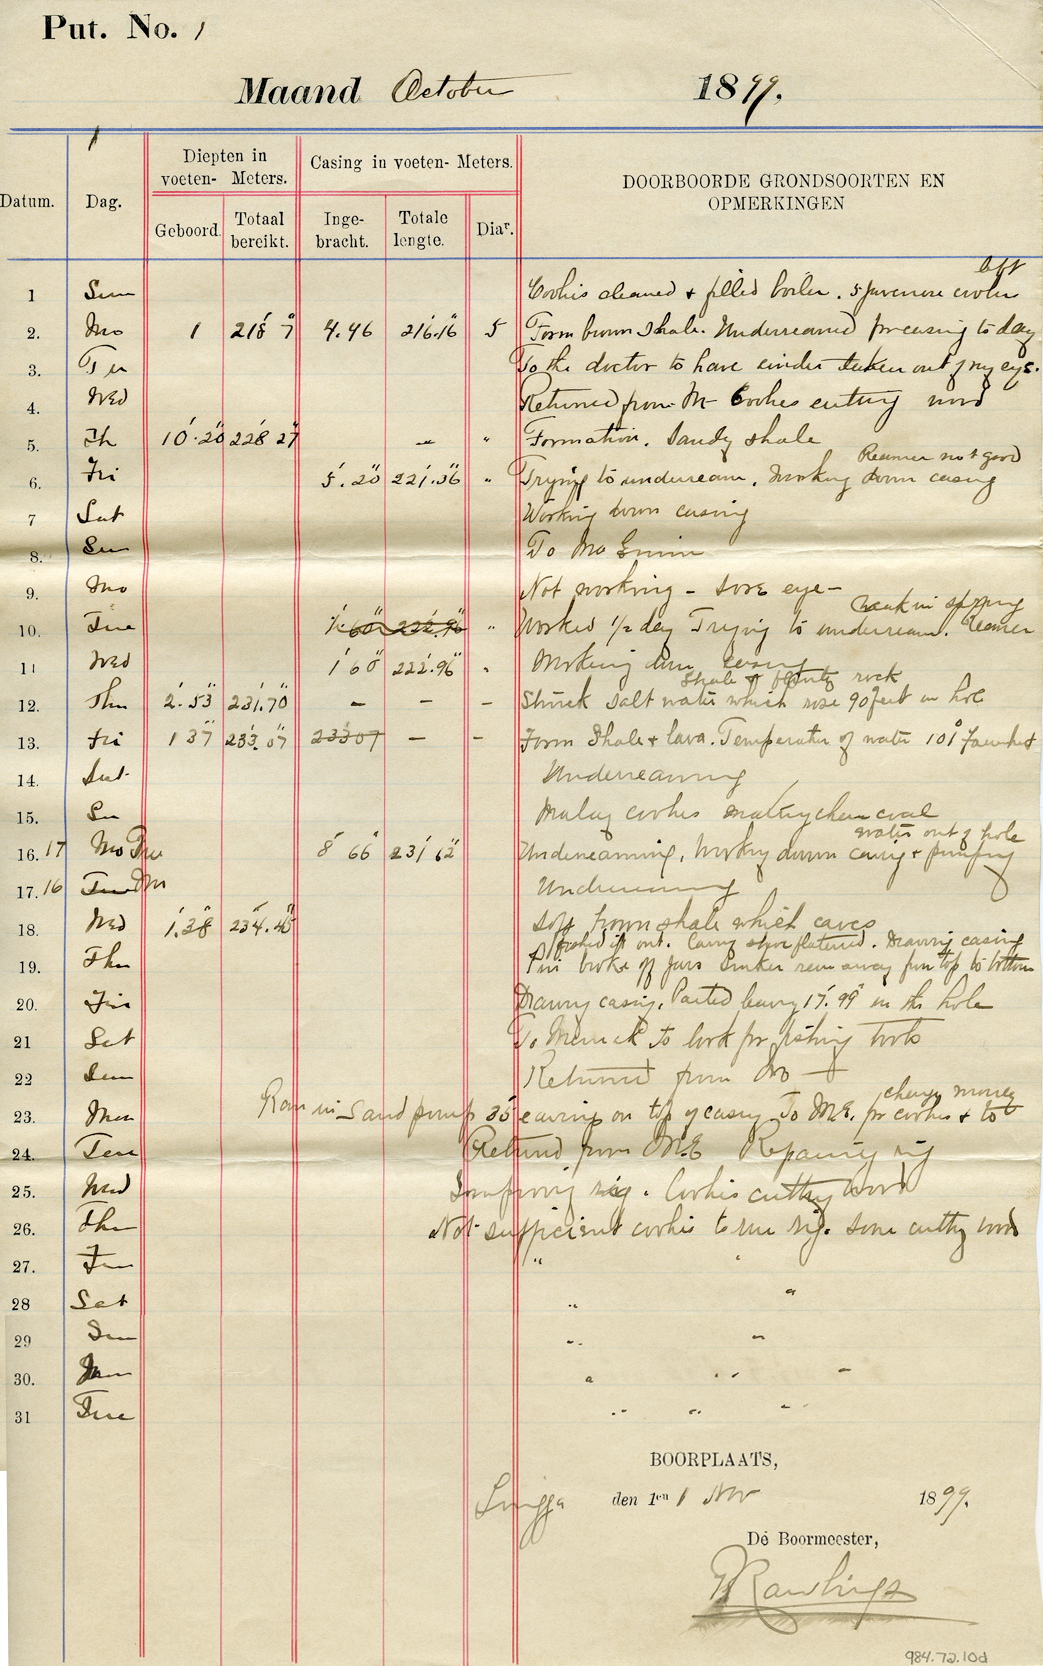 Put. No. 1
Maand October 1899.
Datum. Dag. Diepten in voeten- Meters. Casing in voeten- Meters. DOORBOORDE GRONDSOORTEN EN OPMERKINGEN
Geboord. Totaal bereikt. Inge-bracht. Totale lengte. Diar.
left
1 Sun Coolies cleaned & filled boiler. 5 coolies
2. Mo 1 218' 7" 4.46 216.16" 5 Form brown shale. Underreamed for casing to day
3. Tu To the doctor to have cinder taken out of my eye.
4. Wed Returned from M- Coolies cutting wood
5. Th 10'.20" 228' 27" — " Formation. Sandy shale
Reamer not good
6. Fri 5'.20" 221'.36" " Trying to underream. Working down casing
7 Sat Working down casing
8. Su To Mo
9. Mo Not working - Sore eye -
Weak in spring
10. Tue 1'60" 222.96" " Worked 1/2 day Trying to underream. Reamer
11 Wed 1'60" 222'.96" " Working down casing
Shale & flinty rock
12. Thu 2'.53" 231'.70" — — — Struck Salt water which rose 90 feet in hole
13. Fri 1'37" 233'.07" 233 07 — — Form Shale & lava. Temperatur of water 101°
14. Sat Underreaming
15. Su Malay coolies making charcoal
water out of hole
16. 17 Mo Tue 8' 66" 231' 62" Underreaming, Working down casing & pumping
17. 16 Tue Mo Underreaming
18. Wed 1'.38" 234'.45" Soft brown shale which caves
fished it out. Casing shoe flattened. Drawing casing
19. Thu Pin broke off jars Sinker ream away from top to bottom
20. Fri Drawing casing. Parted leaving 17'.99" in the hole
21 Sat To Merrick to look for fishing tools
22 Sun Returned from Mo
change money
23. Mon Ran in Sand pump 35' caving on top of casing. To M.E. for coolies & to
24. Tue Returned from M.E. Repairing rig
25. Wed Improving rig. Coolies cutting wood
26. Thu Not sufficient coolies to run rig. Some cutting wood
27. Fri " "
28 Sat " "
29 Sun " "
30. Mon " " "
31 Tue " " "
BOORPLAATS,
den 1en 1 Nov 1899.
De Boormeester,
Rawlings
984.72.10d